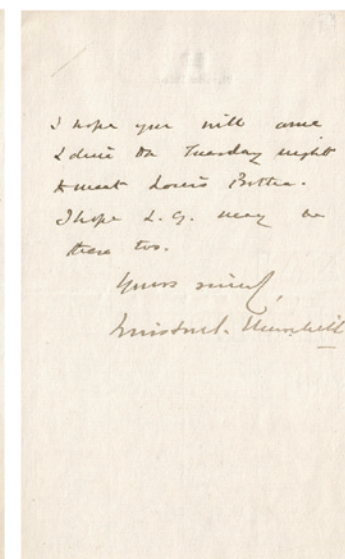 I hope you will come
& dine on Tuesday night
to meet Louis Botha.
I hope L. G. may be
there too.
Yours sincly,
Winston S. Churchill